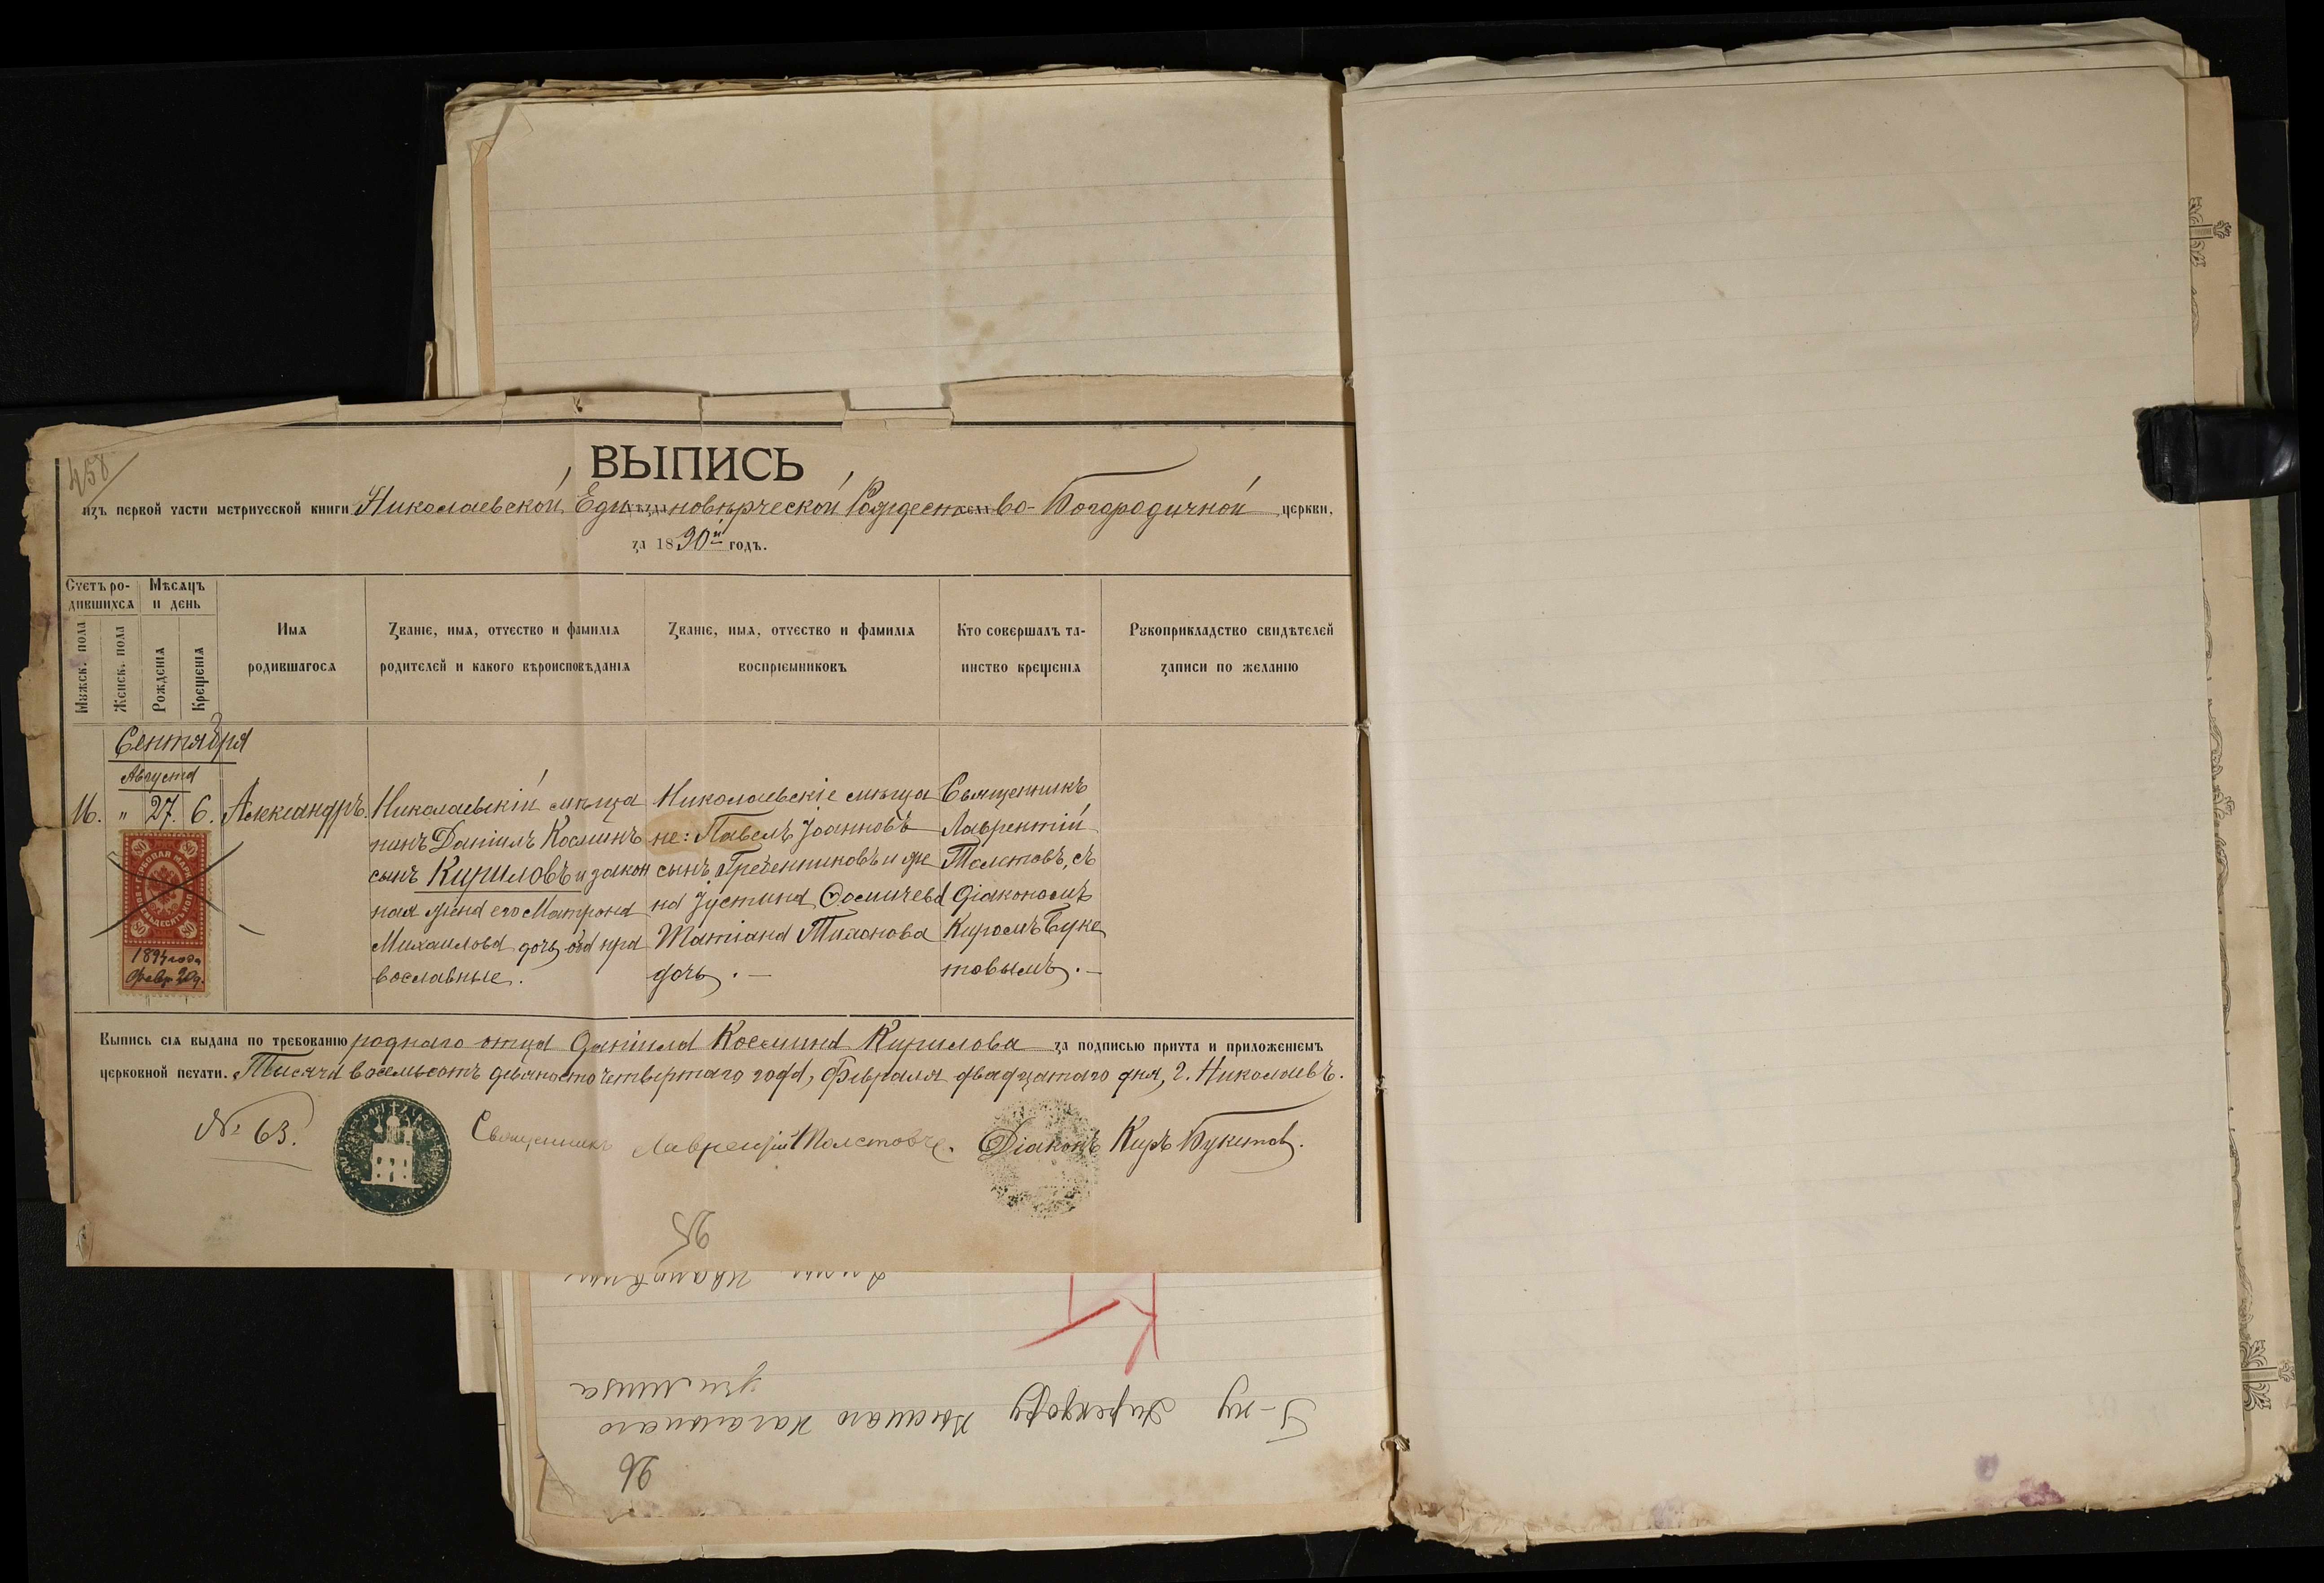 458
ВЫПИСЬ
изъ первой части метрической книги Николаевской Единовѣрческой Рождество-Богородичной церкви,
за 1890й годъ.
Счетъ родившихся
Мѣсяцъ и день
Мужск. пола
Женск. пола
Рожденія
Крещенія
Имя родившагося
Званіе, имя, отчество и фамилія родителей и какого вѣроисповѣданія
Званіе, имя, отчество и фамилія воспріемниковъ
Кто совершалъ таинство крещенія
Рукоприкладство свидѣтелей записи по желанію
Сентября
Августа
16. " 27. 6. Александръ.
Николаевскій мѣща
нинъ Даніилъ Косминъ
сынъ Кириловъ и закон
ная жена его Матрона
Михаилова дочь, оба пра
вославные.
Николаевскіе мѣща
не: Павелъ Іоанновъ
сынъ Гребенниковъ и же
на Іустина Ѳомичева
Татіана Тихонова
дочь. —
Священникъ
Лаврентій
Толстовъ, съ
діакономъ
Киромъ Буке
товымъ. —
80 80
ГЕРБОВАЯ МАРКА
ВОСЕМЬДЕСЯТЪ КОП.
80 80
1894 года
Февр 20 д.
Выпись сія выдана по требованію роднаго отца Даніила Космина Кирилова за подписью причта и приложеніемъ
церковной печати. Тысяча восемьсотъ девяносто четвертаго года, Февраля двадцатаго дня, г. Николаевъ.
№ 63.
Священникъ Лаврентій Толстовъ.
Діаконъ Киръ Букетовъ.
25
26
Г-ну Директору Высшаго Начальнаго
училища